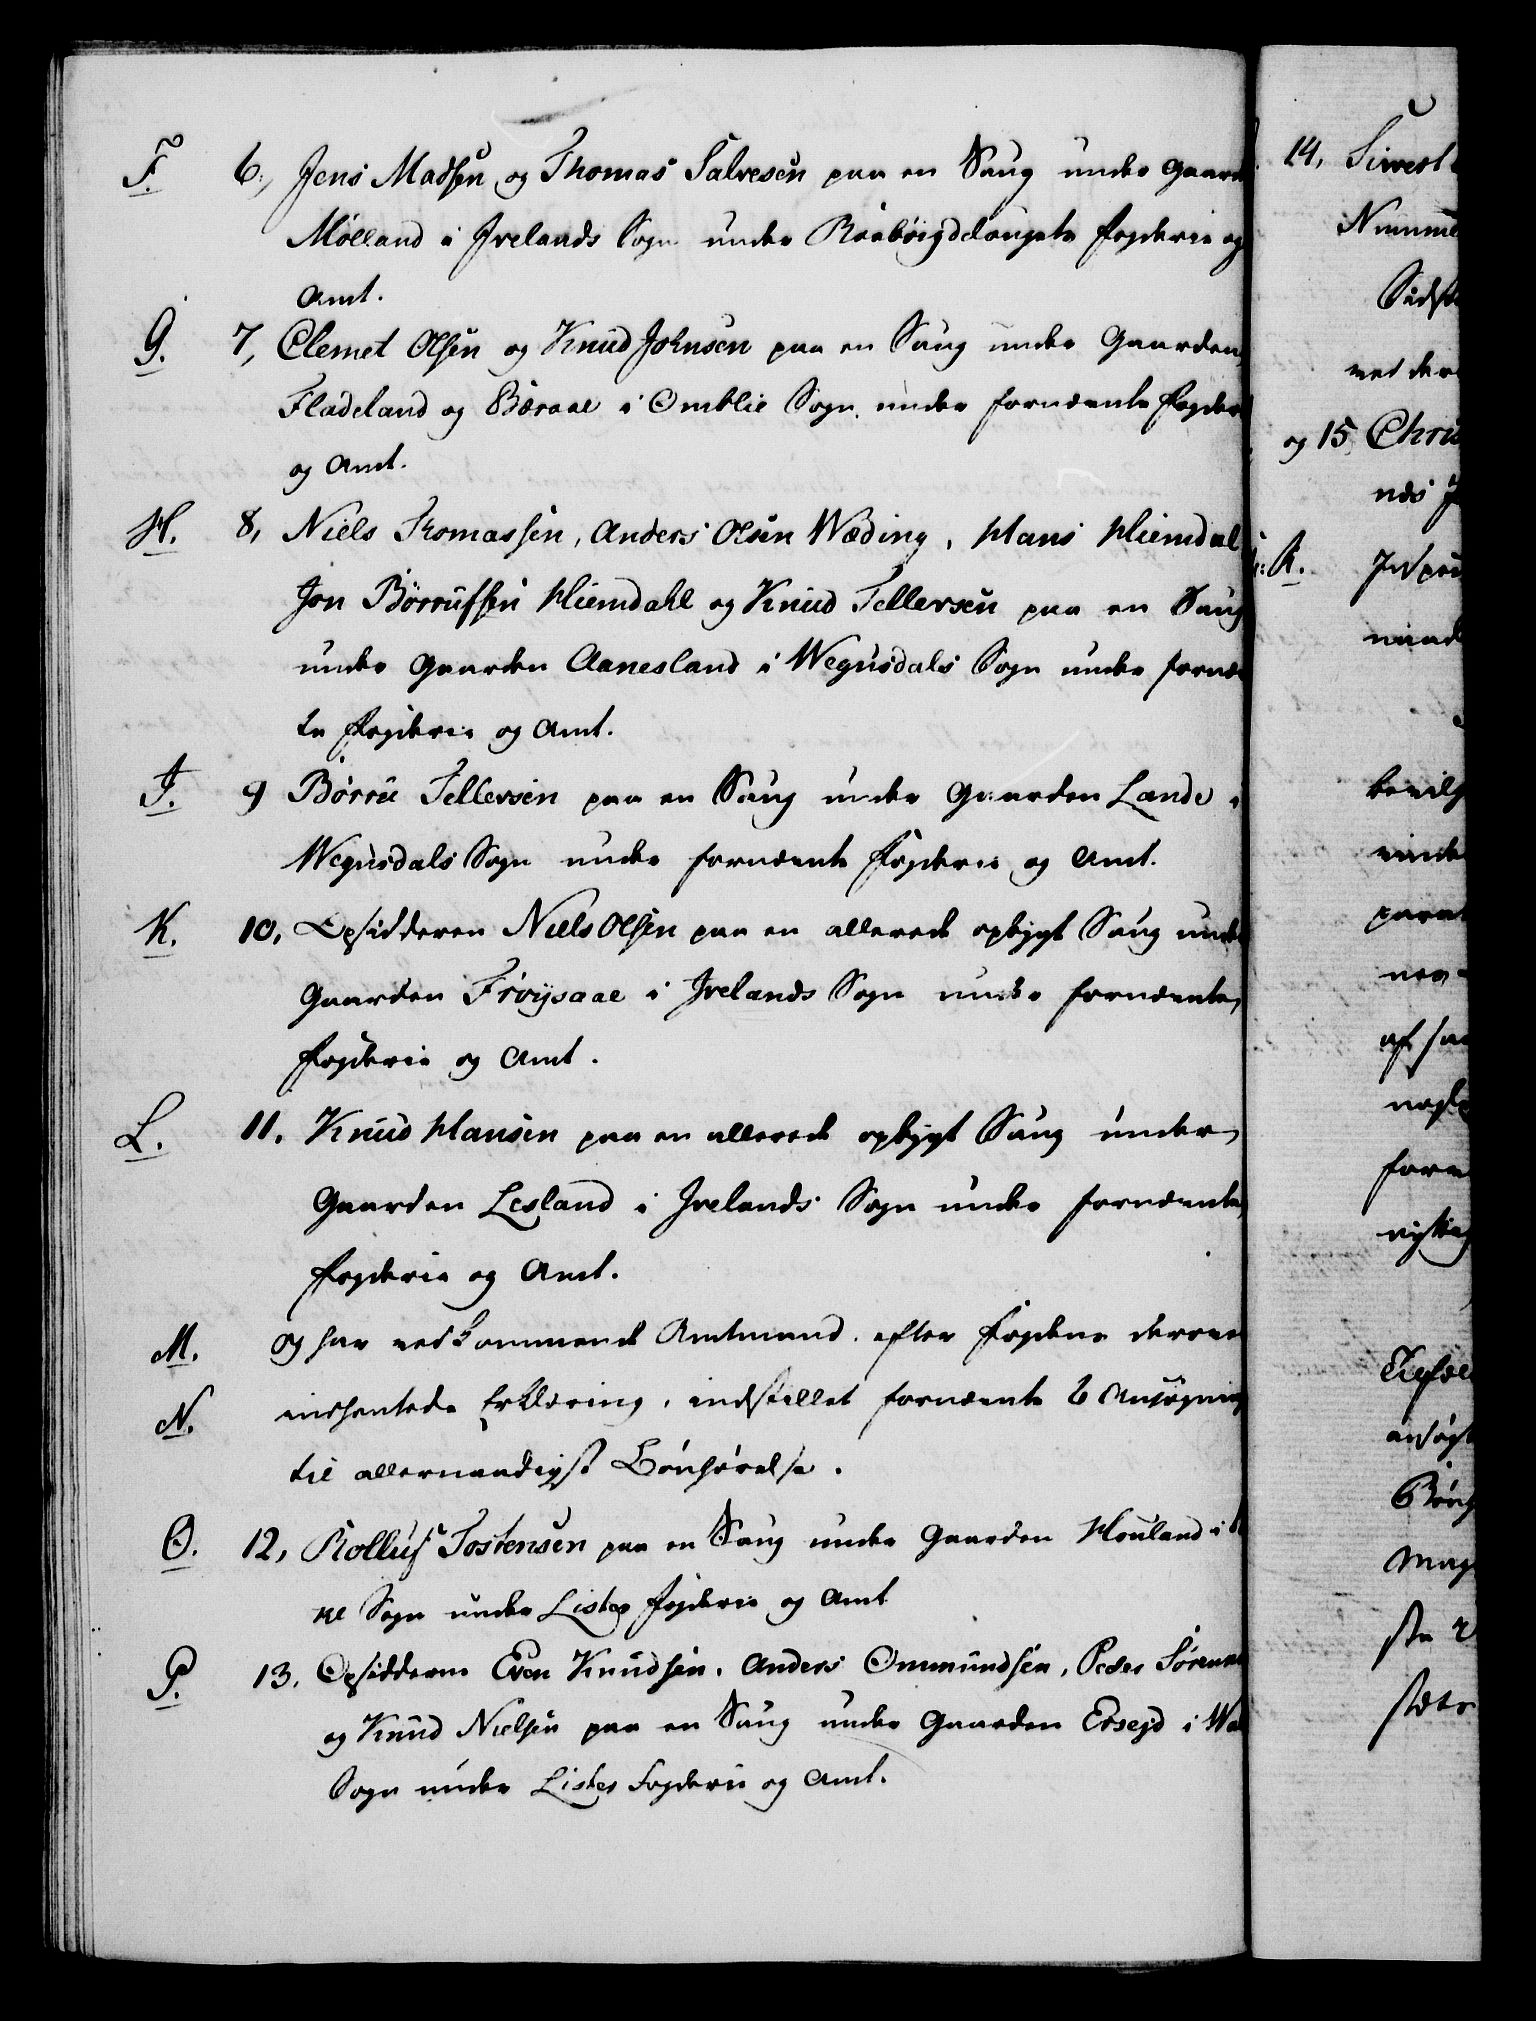 F. 6., Jens Madsen og Thomas Salvesen paa en Saug under Gaard
Mølland i Ivelands Sogn under Raabøigdelaugets Fogderie og
Amt.
G. 7, Clemet Olsen og Knud Johnsen paa en Saug under Gaarden
Fladeland og Bæraae i Omblie Sogn under fornævnte Fogder
og Amt.
H. 8, Niels Thomassen, Anders Olsen Wæding, Hans Hiemdal
Jon Børrufsen Hiemdahl og Knud Tellersen paa en Saug
under Gaarden Aanesland i Wegusdals Sogn under fornæ
te Fogderie og Amt.
I. 9 Børru Tellersen paa en Saug under Gaarden Lande i
Wegusdals Sogn under fornævnte Fogderie og Amt.
K. 10, Opsidderen Niels Olsen paa en allerede opbygt Saug under
Gaarden Frøysaae i Ivelands Sogn under fornævnte
Fogderie og Amt.
L. 11. Knud Hansen paa en allerede opbygt Saug under
Gaarden Lesland i Ivelands Sogn under fornævnte
Fogderie og Amt.
M. og har vedkommende Amtmand, efter Fogdens derove
N. indhentede Erklæring, indstillet fornævnte 6 Ansøgning
til allernaadigst Bønhørelse.
O. 12, Rolluf Tostensen paa en Saug under Gaarden Houland i
ne Sogn under Lister Fogderie og Amt
P. 13. Opsidderne Even Knudsen, Anders Ommundsen, Peder Sørens
og Knud Nielsen paa en Saug under Gaarden Ersejd i
Sogn under Listes Fogderie og Amt.
14, Sivert
Numme
Sidste
ved der
og 15 Chris
næs
R.
bevilg
under
af
Ansøgt